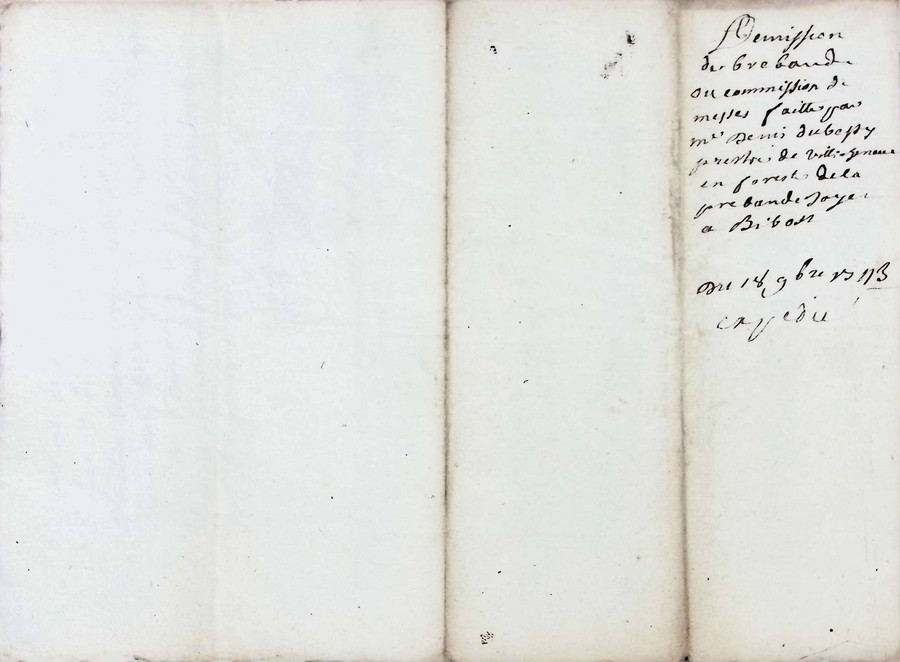 Demission
de brebande
ou commission de
messes faitte par
me Denis dubosy
prestre de
en forest de la
prebande Joye
a Bibost
Du 18 9bre 1773
expedié